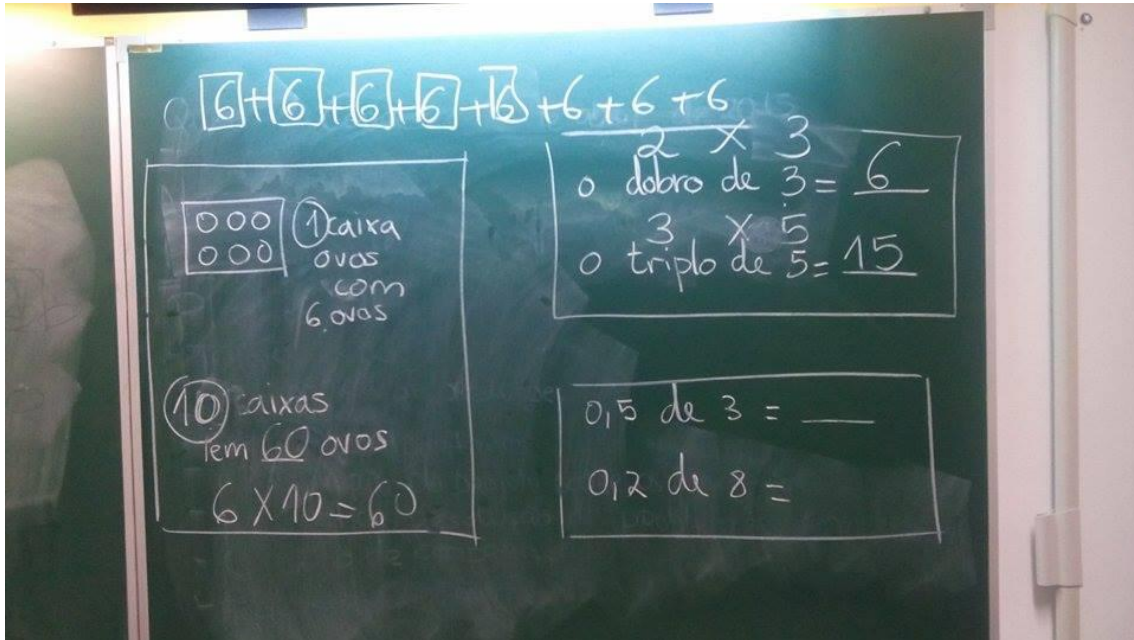 6+6+6+6+6+6+6+6
1 caixa
ovos
com
6 ovos
10 caixas
tem 60 ovos
6 X 10 = 60
2 X 3
o dobro de 3 = 6
3 X 5
o triplo de 5 = 15
0,5 de 3 = ___
0,2 de 8 =